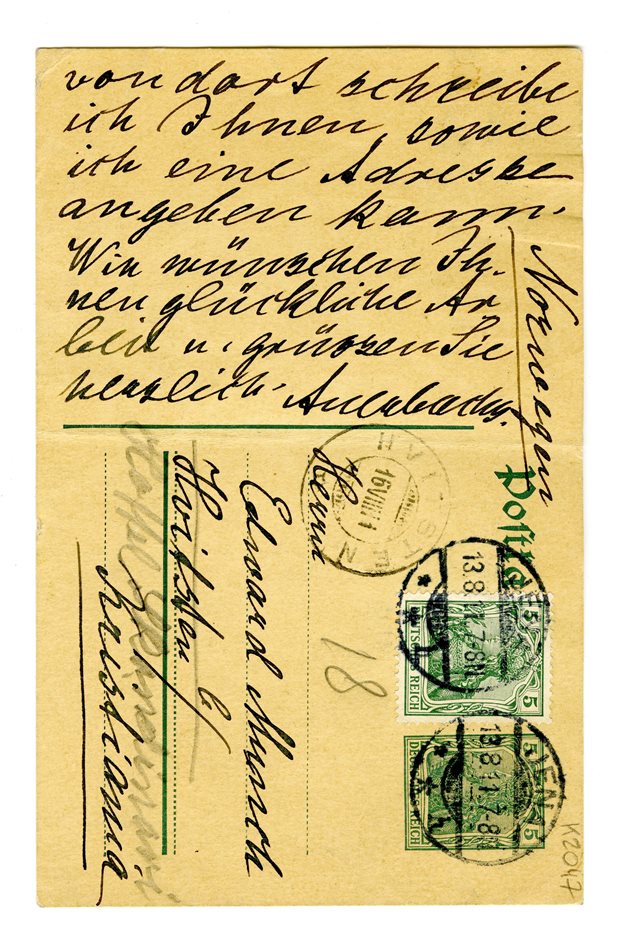 von dort schreibe
ich Ihnen, sowie
ich eine Adresse
angeben kann.
Wir wünschen Ih-
nen glückliche Ar
beit u. grüszen Sie
herzlich. Auerbachs.
Norwegen
Herrn
Edvard Munch
Hvitsten
Kristiania
18
HVITSTEN
16 VIII 11
JENA
13.8.11.7-8N
DEUTSCHES REICH
5
JENA
13.8.11.7-8N
DEUTSCHES REICH
5
K2047